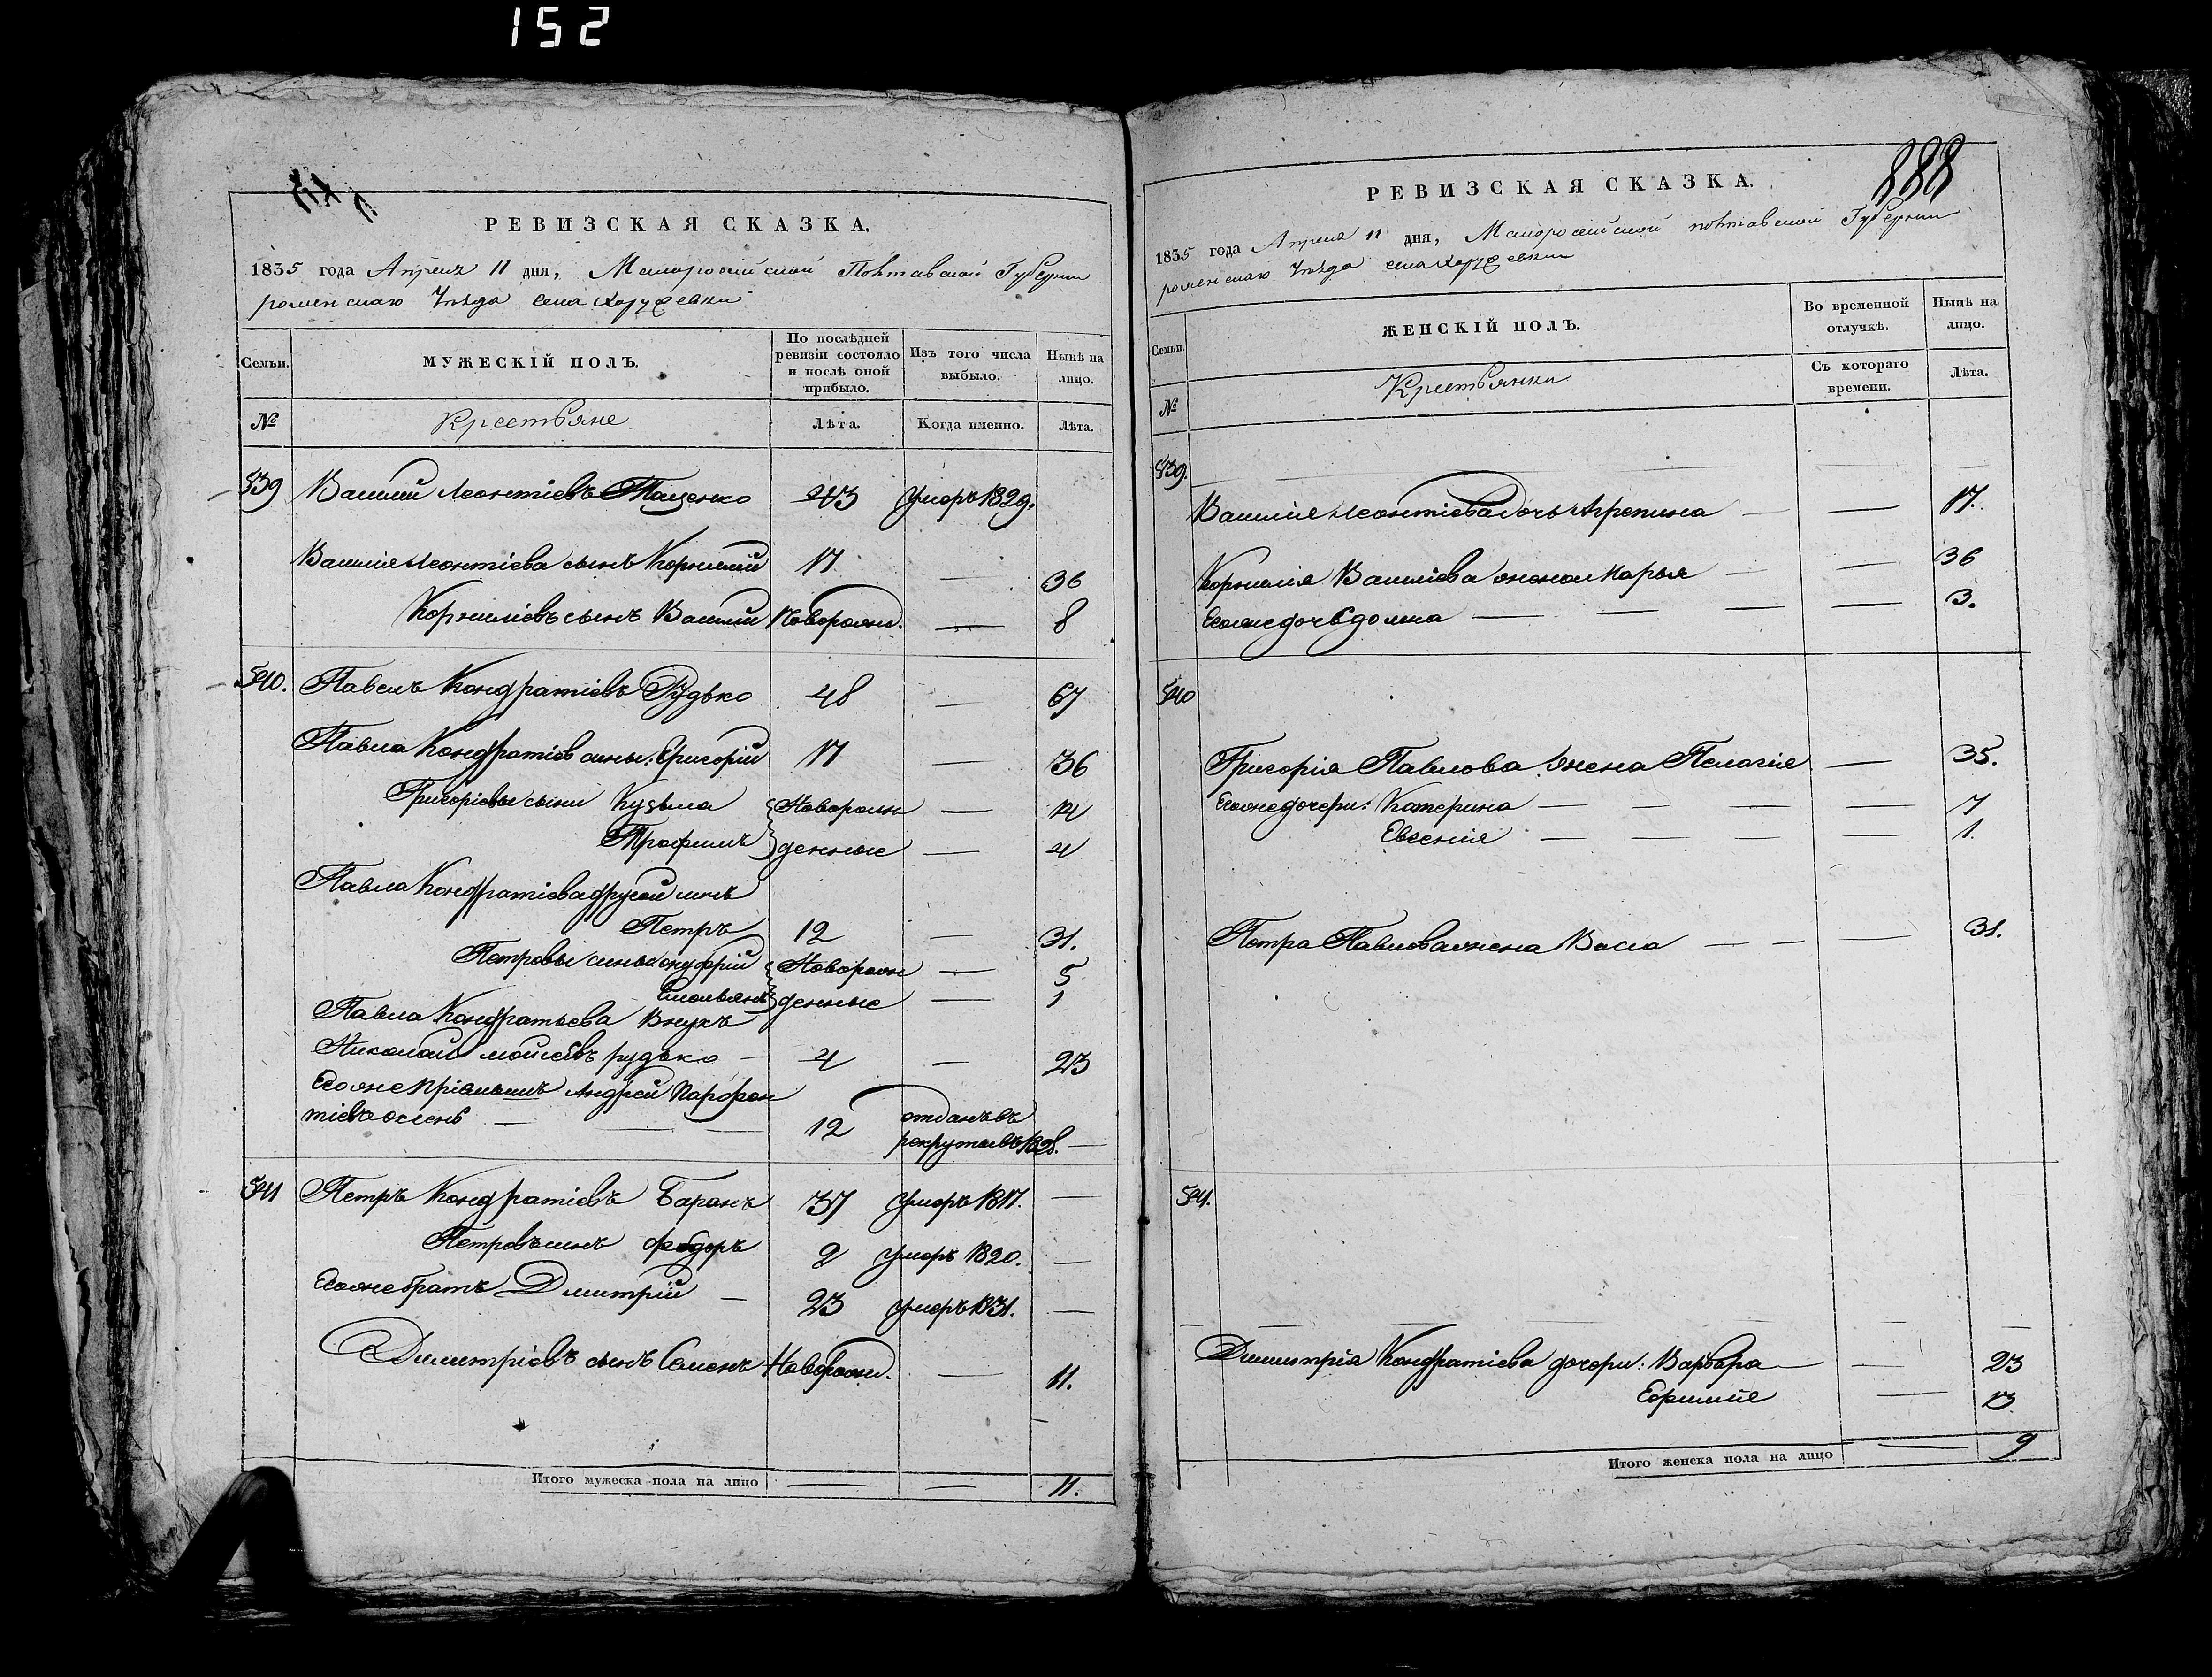 152
РЕВИЗСКАЯ СКАЗКА.
1835 года Апреля 11 дня, Малоросійской Полтавской Губерніи
роменскаго Уѣзда села Хоружевки
Семьи.
МУЖЕСКІЙ ПОЛЪ.
По послѣдней ревизіи состояло и послѣ оной прибыло.
Изъ того числа выбыло.
Нынѣ на лицо.
№
Крестьяне
Лѣта.
Когда именно.
Лѣта.
539 Василий Леонтіевъ Тащенко 43 Умеръ 1829.
Василія Леонтіева сынъ Корнилій 17 — 36
Корниліевъ сынъ Василий Новорожд. — 8
540. Павелъ Кондратіевъ Рудько 48 — 67
Павла Кондратіев сины: Григорій 17 — 36
Григоріевы сыни Кузьма Новорож — 14
Трофимъ денные — 4
Павла Кондратіева другой синъ
Петръ 12 — 31.
Петровы сины Онуфрій Новорож — 5
денные — 1
Павла Кондратьева Внукъ
Николай Мойсеевъ рудько — 4 — 23
Егоже Пріемышъ Андрей Парфен
тіевъ 12 отданъ въ
рекруты въ 1828. —
541 Петръ Кондратіевъ Баранъ 37 Умеръ 1817. —
Петровъ синъ Федоръ 2 Умеръ 1820. —
Егоже братъ Дмитрій — 23 Умеръ 1831. —
Димитріевъ сынъ Семенъ Новорожд. — 11.
Итого мужеска пола на лицо — — 11.
888
РЕВИЗСКАЯ СКАЗКА.
1835 года Апреля 11 дня, Малоросейской полтавской Губерніи
роменскаго Уѣзда села Хоружевки
Семьи.
ЖЕНСКІЙ ПОЛЪ.
Во временной отлучкѣ.
Нынѣ на лицо.
№
Крестьянки
Съ котораго времени.
Лѣта.
539.
Василія Леонтіева дочь Агрепина — — 17.
Корнилія Василіева жена Марья — — 36
Егоже дочь Єдокиа — — — — 3.
540
Григорія Павлова Жена Пелагія — 35.
Егоже дочери: Катерина — — — — 7
Евгенія — — — — 1.
Петра Павлова жена Васса — — — 31.
541.
Димитрія Кондратіева дочери: Варвара — — 23
Ефимія — 13
Итого женска пола на лицо — 9